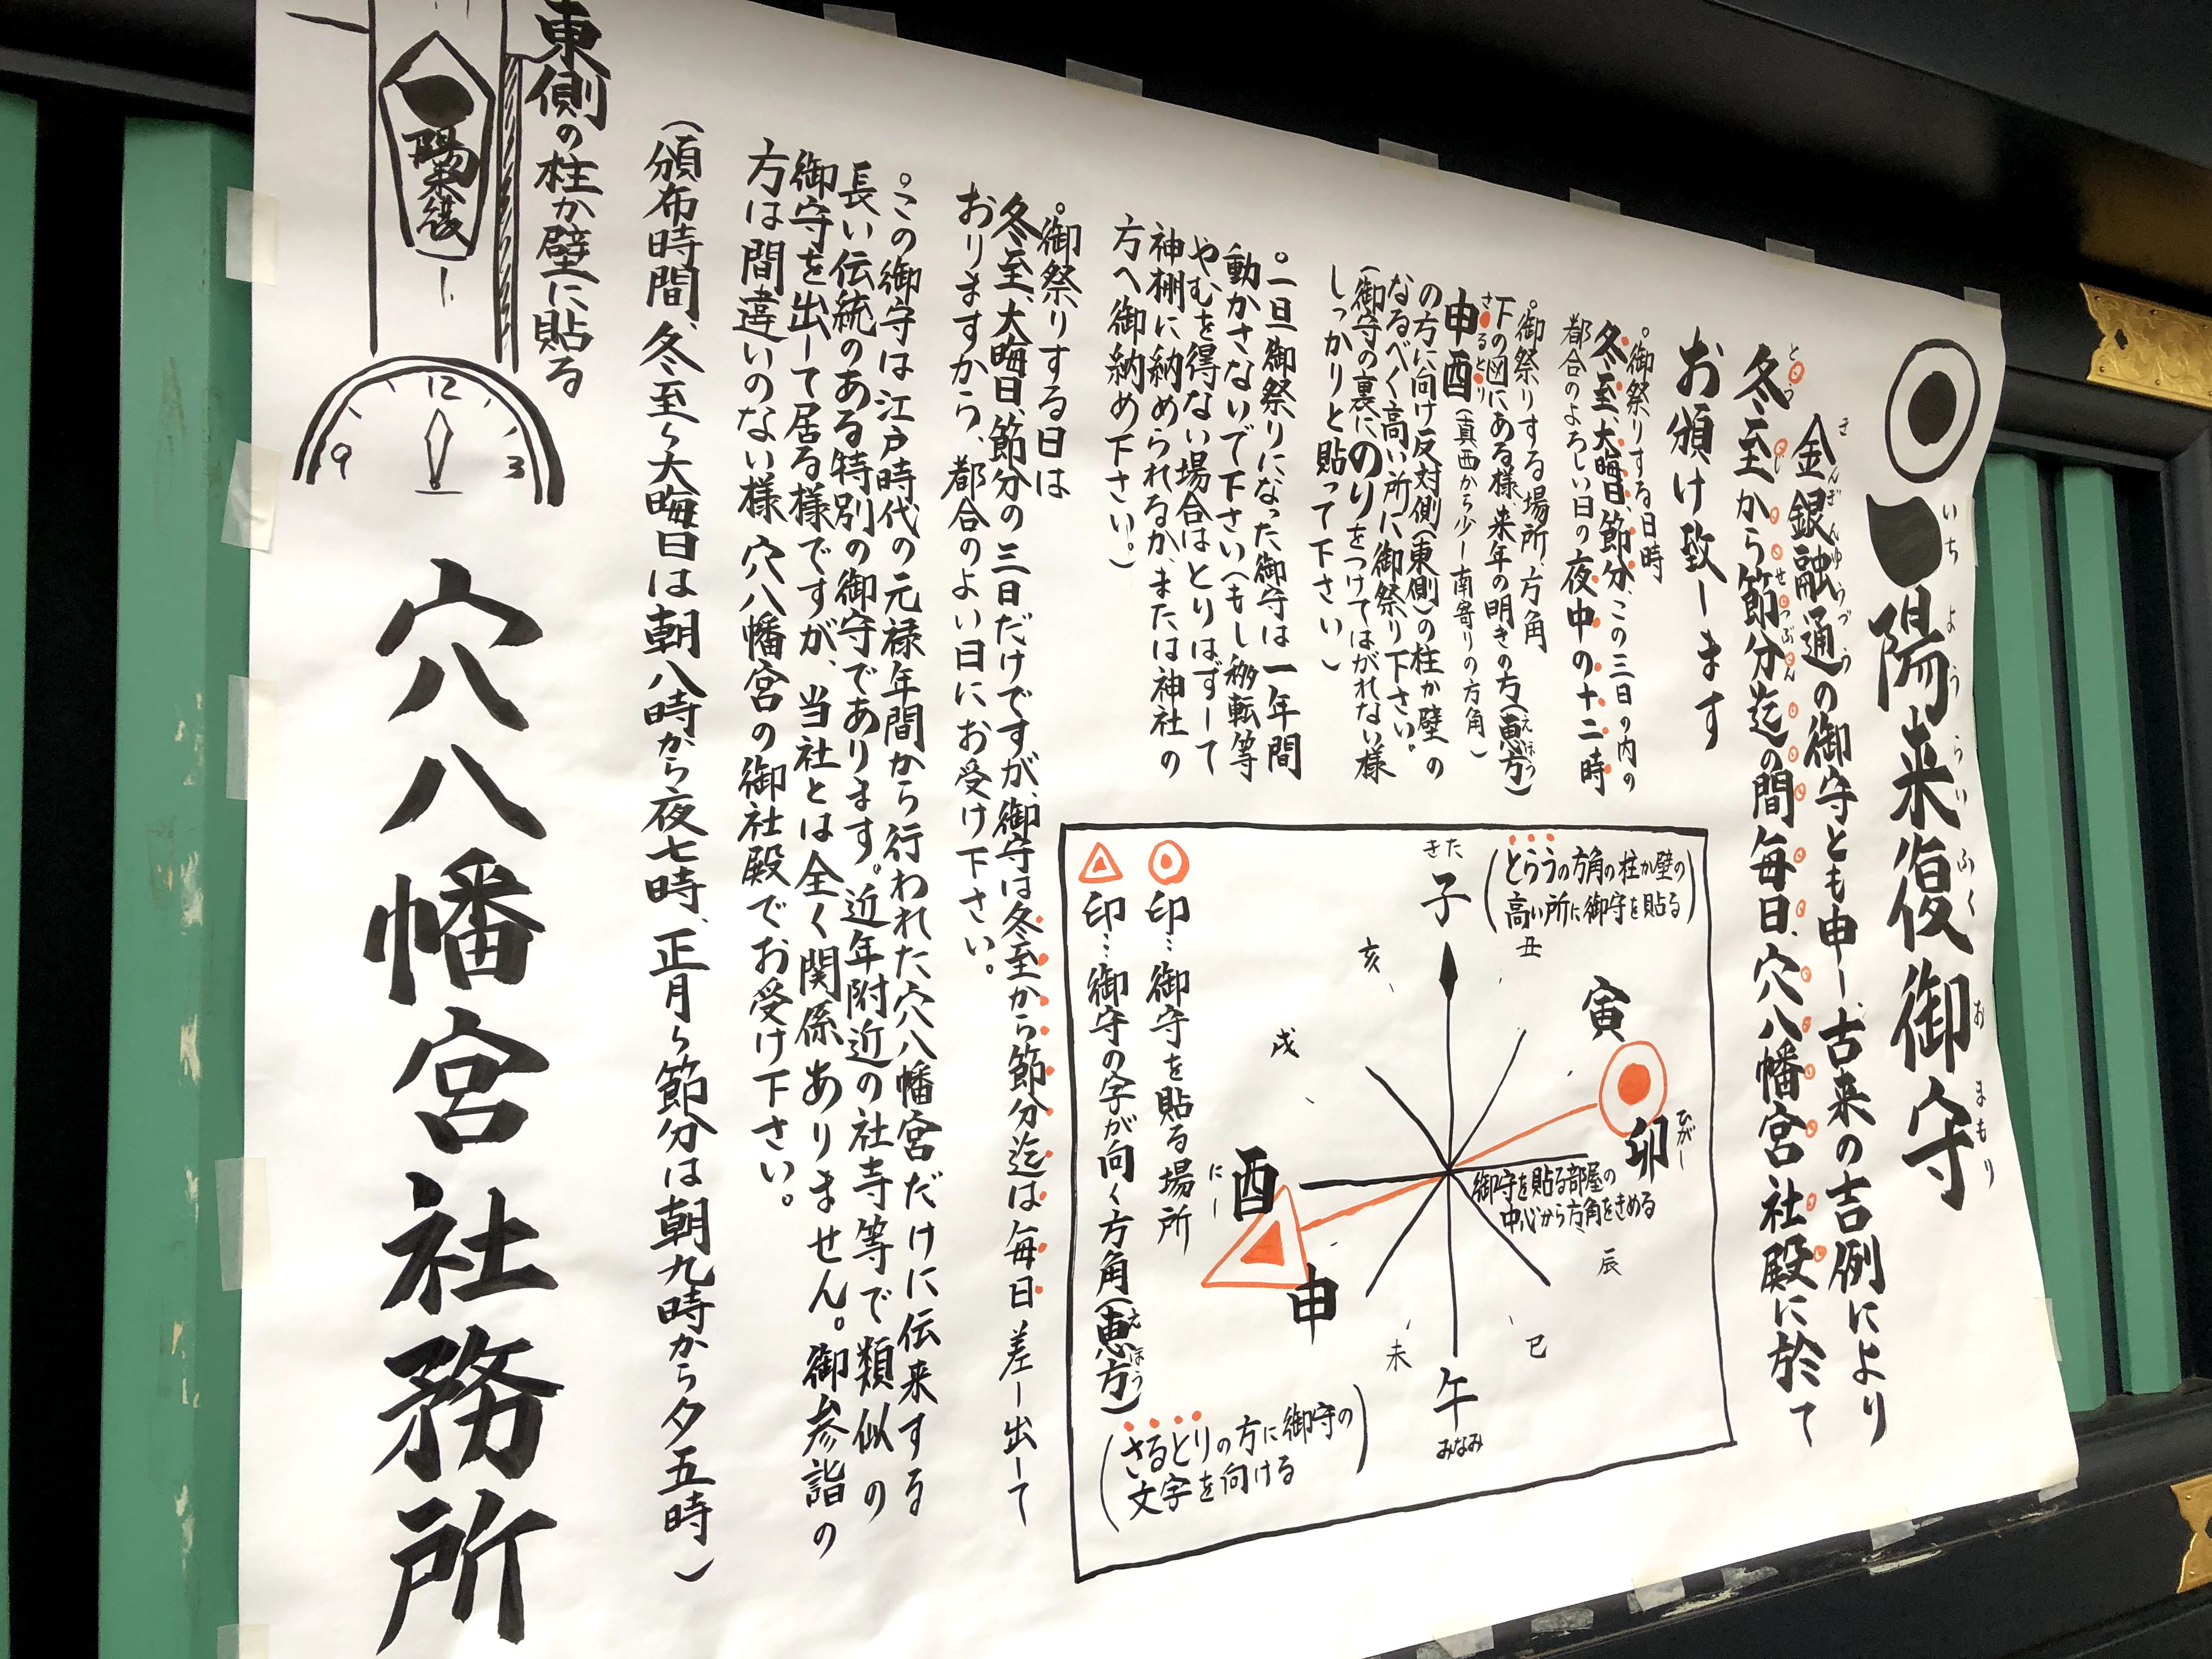 一陽来復御守
いちようらいふくおまもり
金銀融通の御守とも申し、古来の吉例により
きんぎんゆうづう
冬至から節分迄の間毎日、穴八幡宮社殿に於て
とうじ せつぶん
お頒け致します
。御祭りする日時
冬至、大晦日、節分、この三日の内の
都合のよろしい日の夜中の十二時
。御祭りする場所、方角
下の図にある様来年の明きの方(恵方)
えほう
申酉(真西から少し南寄りの方角)
さるとり
の方に向け反対側(東側)の柱か壁の
なるべく高い所に御祭り下さい。
(御守の裏にのりをつけてはがれない様
しっかりと貼って下さい)
。一旦御祭りになった御守は一年間
動かさないで下さい(もし移転等
やむを得ない場合はとりはずして
神棚に納められるか、または神社の
方へ御納め下さい。)
。御祭りする日は
冬至、大晦日、節分の三日だけですが、御守は冬至から節分迄は毎日差し出して
おりますから、都合のよい日にお受け下さい。
。この御守は江戸時代の元禄年間から行われた穴八幡宮だけに伝来する
長い伝統のある特別の御守であります。近年附近の社寺等で類似の
御守を出して居る様ですが、当社とは全く関係ありません。御参詣の
方は間違いのない様穴八幡宮の御社殿でお受け下さい。
(頒布時間、冬至〜大晦日は朝八時から夜七時、正月〜節分は朝九時から夕五時)
東側の柱か壁に貼る
一陽来復
9 12 3
穴八幡宮社務所
(とらうの方角の柱か壁の
高い所に御守を貼る)
きた
子
丑
寅
卯
ひがし
辰
巳
午
みなみ
未
申
酉
にし
戌
亥
御守を貼る部屋の
中心から方角をきめる
印…御守を貼る場所
印…御守の字が向く方角(恵方)
えほう
(さるとりの方に御守の
文字を向ける)